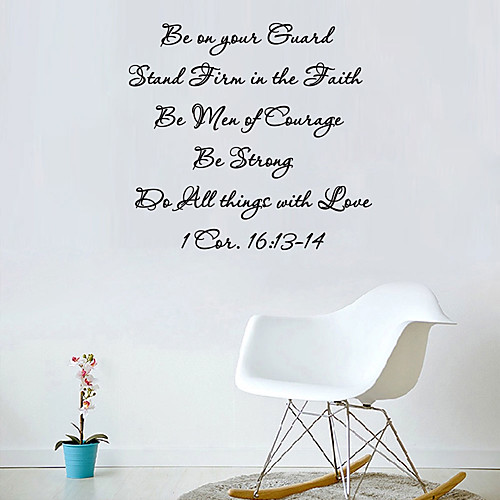 Be on your Guard
Stand Firm in the Faith
Be Men of Courage
Be Strong
Do All things with Love
1 Cor. 16:13-14